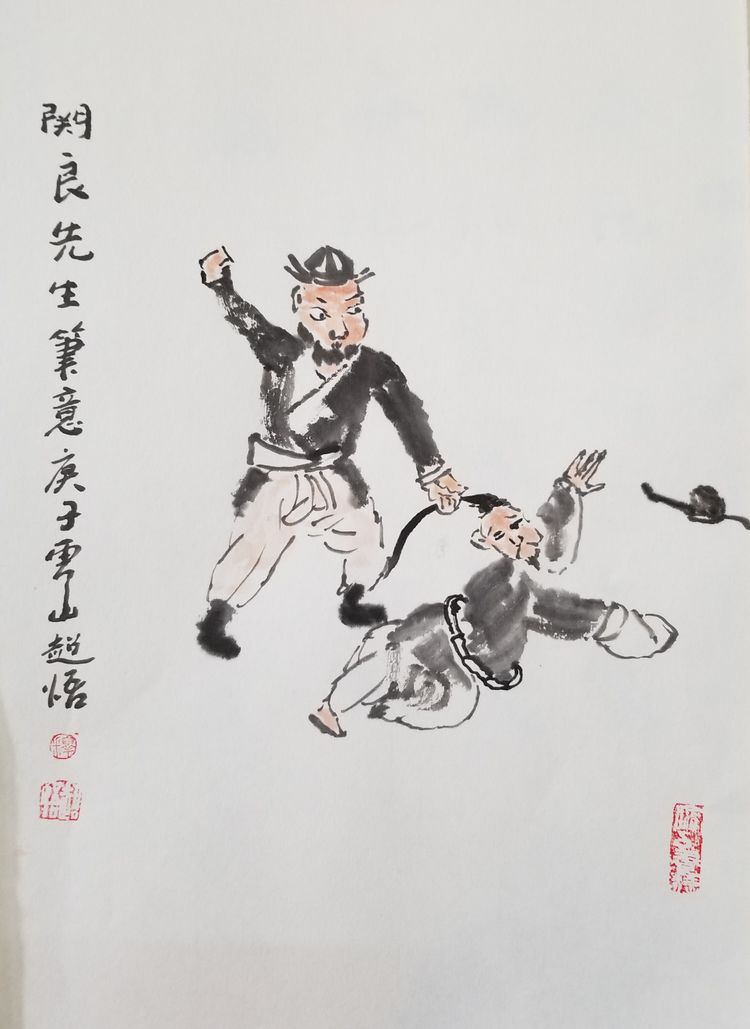 関良先生筆意庚子雲山趙悟